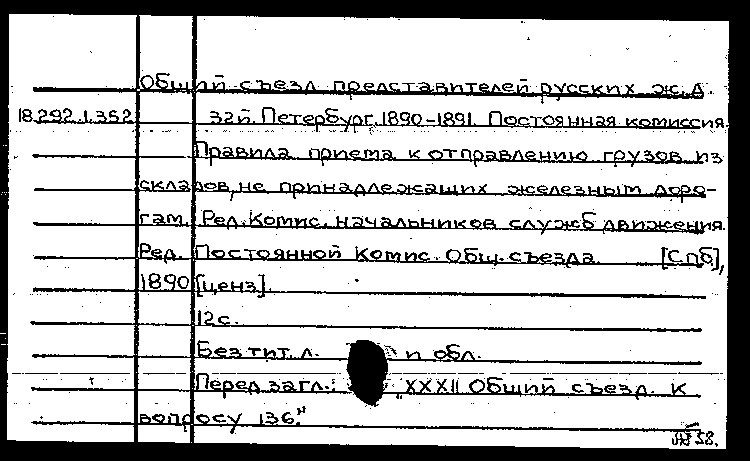 Общий съезд представителей русских ж.д.
18.292.1.352 32й. Петербург. 1890-1891. Постоянная комиссия.
Правила приема к отправлению грузов из
складов, не принадлежащих железным доро-
гам. Ред. Комис. начальников служб движения.
Ред. Постоянной Комис. Общ. съезда [Спб],
1890 [ценз].
12 с.
Без тит. л. и обл.
Перед загл.: „XXXII Общий съезд. К
вопросу 136."